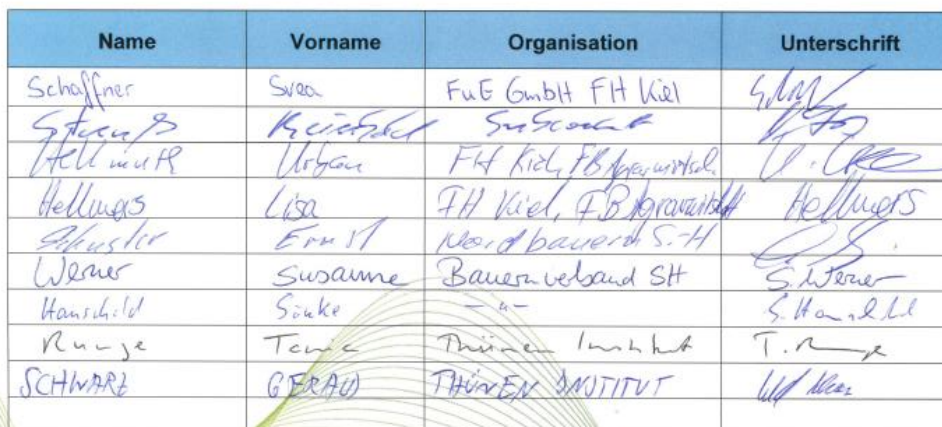 Name Vorname Organisation Unterschrift
Schaffner Svea FuE GmbH FH Kiel
Hellmuth Urban FH Kiel, FB Agrarwirtsch.
Hellmers Lisa FH Kiel, FB Agrarwirtschaft Hellmers
Schuster Ernst Nordbauern S.-H
Werner Susanne Bauernverband SH S. Werner
Hauschild Sönke - " -
Runge Tania Thünen Institut T. Runge
SCHWARZ GERALD THÜNEN INSTITUT